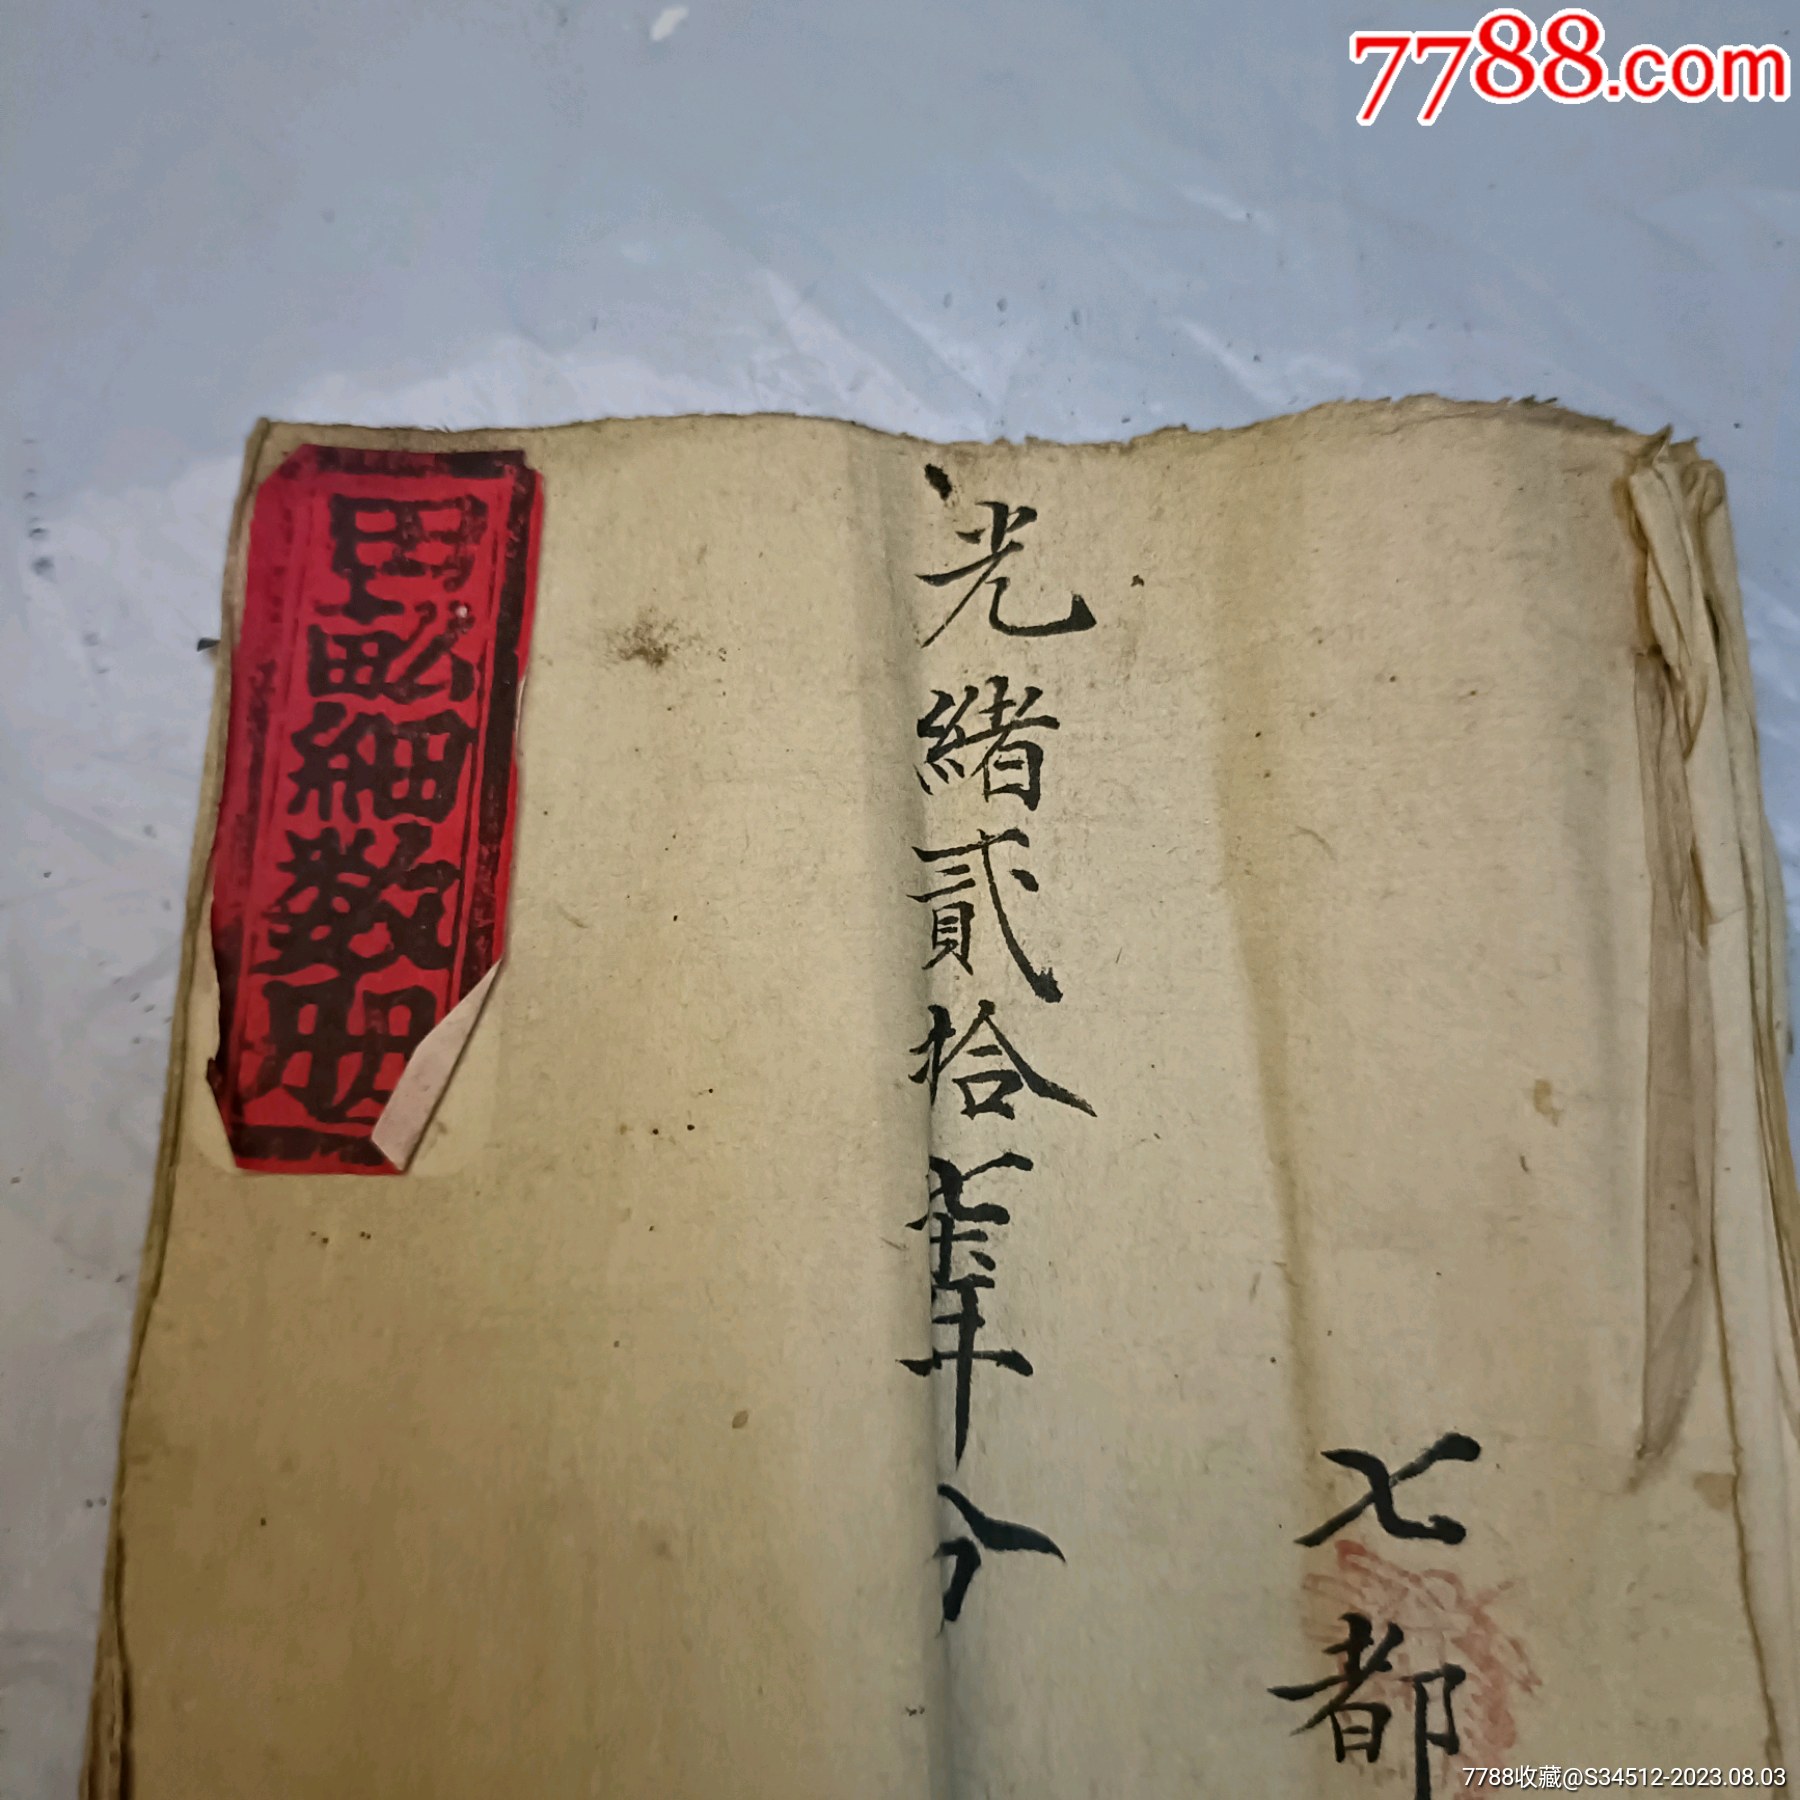 七都
光緒貳拾柒年分
畝細数冊
7788.com
7788收藏@S34512-2023.08.03